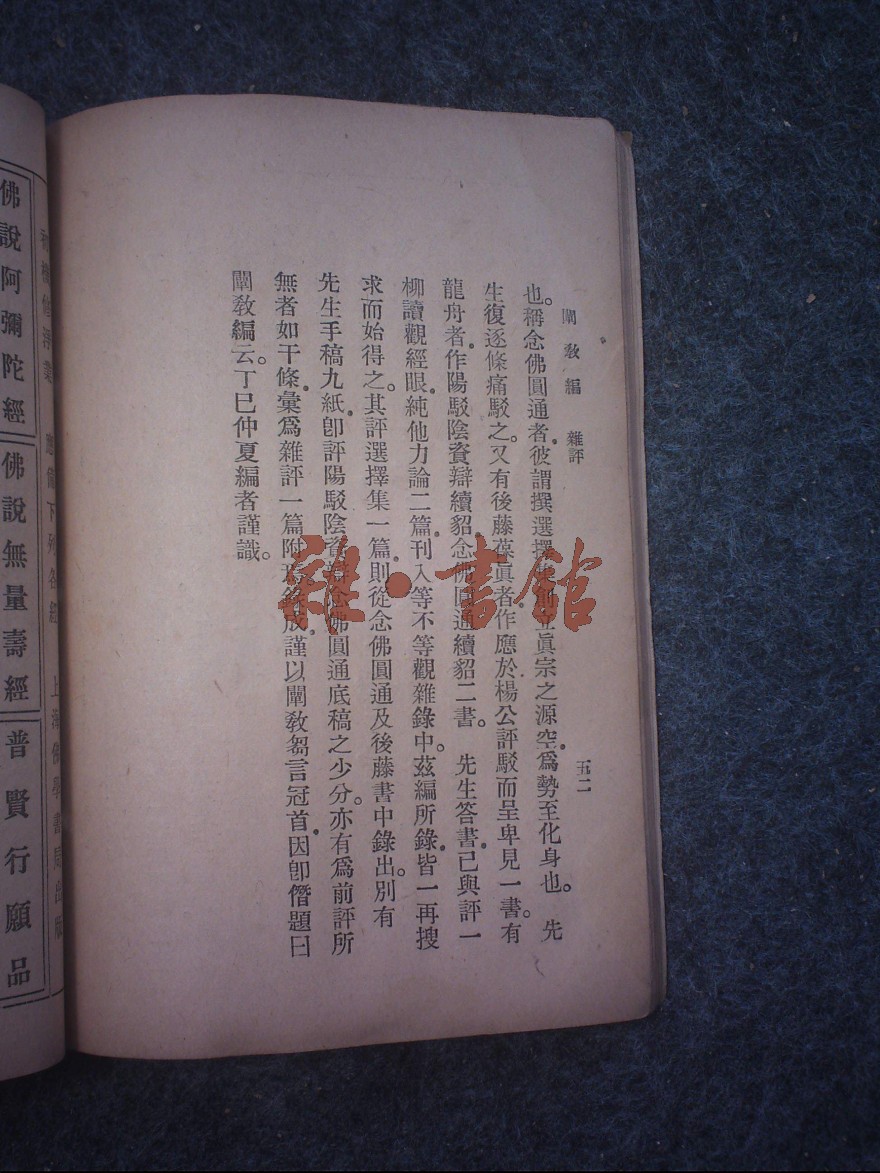 闡敎編　雜評　五二
也。稱念佛圓通者。彼謂撰選擇集創立眞宗之源空。爲勢至化身也。　先
生復逐條痛駁之。又有後藤葆眞者。作應於楊公評駁而呈卑見一書。有
龍舟者。作陽駁陰資辯續貂念佛圓通續貂二書。　先生答書。已與評一
柳讀觀經眼。純他力論二篇。刊入等不等觀雜錄中。茲編所錄。皆一再搜
求而始得之。其評選擇集一篇。則從念佛圓通及後藤書中錄出。別有
先生手稿九紙。卽評陽駁陰資辯念佛圓通底稿之少分。亦有爲前評所
無者如干條。彙爲雜評一篇附焉。錄成。謹以闡敎芻言冠首。因卽僭題曰
闡敎編云。丁巳仲夏編者謹識。
雜·書館
應備下列各經　上海佛學書局出版
佛說阿彌陀經
佛說無量壽經
普賢行願品